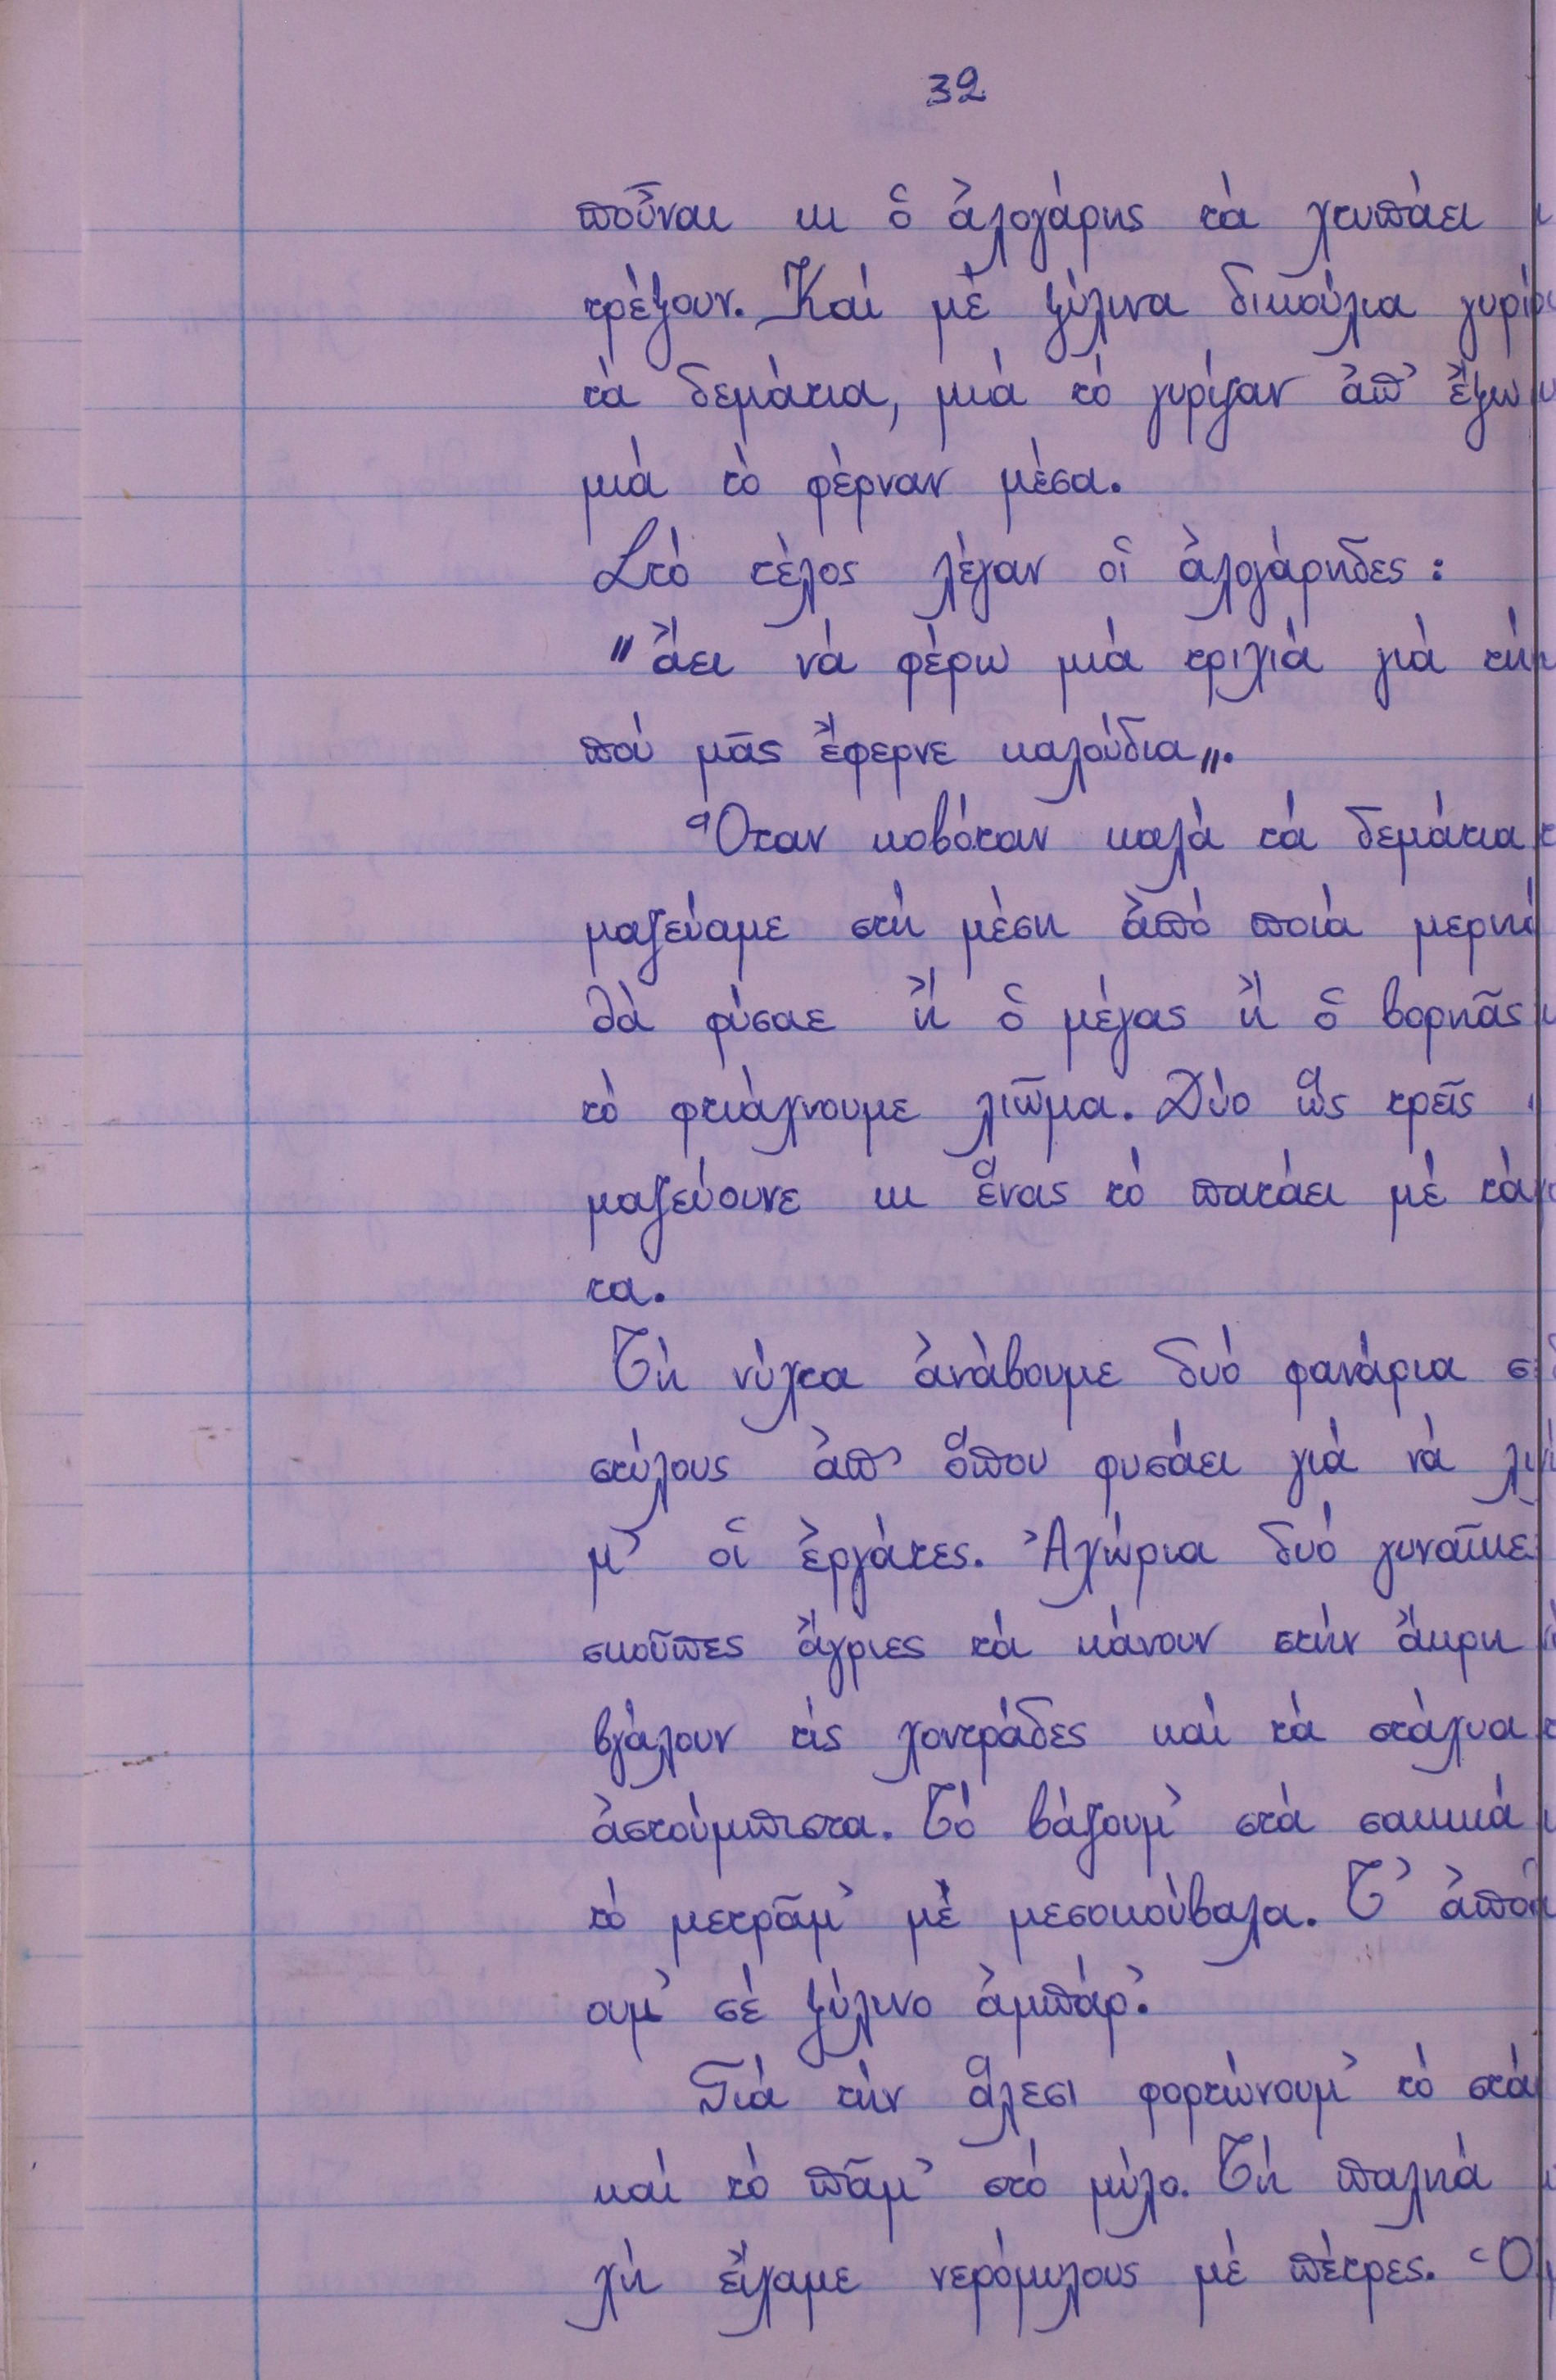 32
ποὖναι κι ὁ ἀλογάρης τὰ χτυπάει
τρέξουν. Καί μέ ξύλινα δικούλια
τὰ δεμάτια, μιά τό γυρίζαν ἀπ' ἔξω
μιά τό φέρναν μέσα.
Στό τέλος λέγαν οἱ ἀλογάρηδες:
"ἄει νά φέρω μιά τριχιά γιά
πού μᾶς ἔφερνε καλούδια„.
Ὅταν κοβόταν καλά τά δεμάτια
μαζεύαμε στή μέση ἀπό ποιά
θά φύσαε ἤ ὁ μέγας ἤ ὁ βορηᾶς
τό φτιάχνουμε λιῶμα. Δύο ὥς τρεῖς
μαζεύουνε κι ἕνας τό πατάει μέ
τα.
Τή νύχτα ἀνάβουμε δυό φανάρια
στύλους ἀπ' ὅπου φυσάει γιά νά
μ' οἱ ἐργάτες. Ἀχώρια δυό
σκοῦπες ἄγριες τά κάνουν στήν ἄκρη
βγάλουν τίς χοντράδες καί τά στάχυα
ἀστούμπιστα. Τό βάζουμ' στά σακκιά
τό μετρᾶμ' μέ μεσοκούβαλα. Τ'
ουμ' σέ ξύλινο ἀμπάρ'.
Γιά τήν ἅλεσι φορτώνουμ' τό
καί τό πᾶμ' στό μύλο. Τή παληά
χή εἴχαμε νερόμυλους μέ πέτρες.